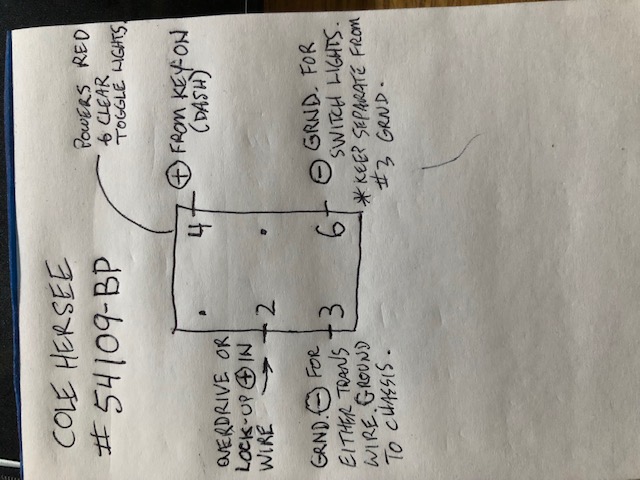 COLE HERSEE
# 54109-BP
POWERS RED
& CLEAR
TOGGLE LIGHTS.
4
+ FROM KEY-ON
(DASH)
OVERDRIVE OR
LOCK-UP + IN
WIRE →
2
GRND. - FOR
EITHER TRANS
WIRE. GROUND
TO CHASSIS.
3
6
- GRND. FOR
SWITCH LIGHTS.
* KEEP SEPARATE FROM
#3 GRND.